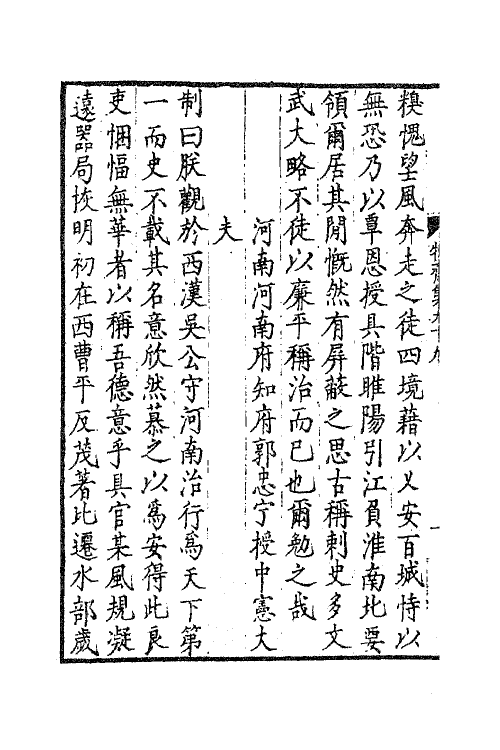 糗愧望風奔走之徒四境藉以乂安百城恃以
無恐乃以覃恩授具階睢陽引江負淮南北要
領爾居其閒慨然有屏蔽之思古稱刺史多文
武大略不徒以廉平稱治而已也爾勉之哉
河南河南府知府郭忠宁授中憲大
夫
制曰朕觀於西漢吳公守河南治行爲天下第
一而史不載其名意欣然慕之以爲安得此良
吏悃愊無華者以稱吾德意乎具官某風規凝
遠器局恢明初在西曹平反茂著比遷水部歲